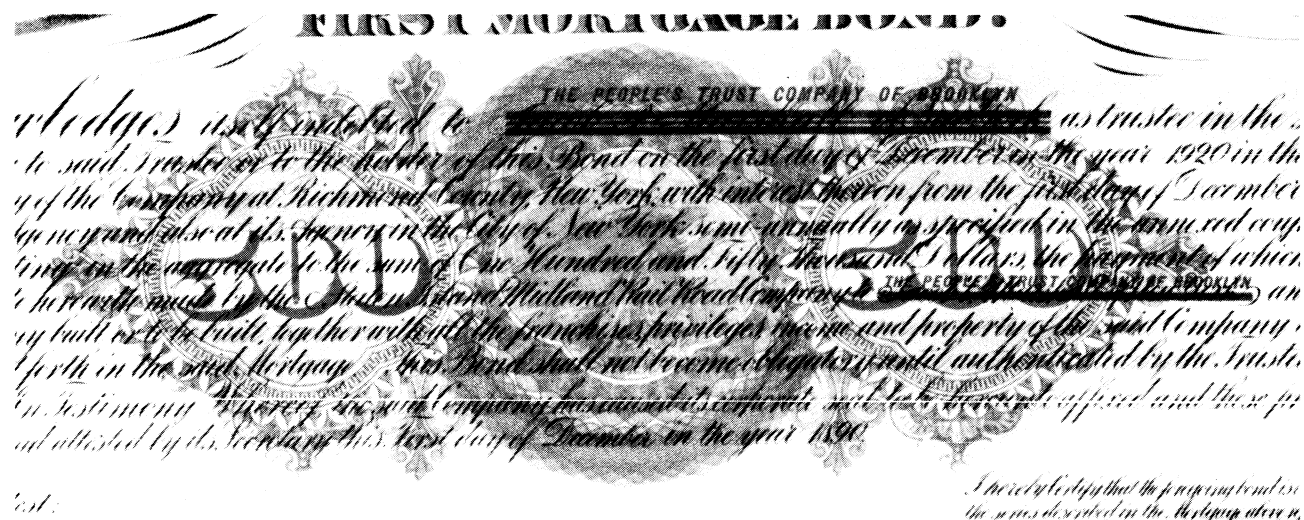 FIRST MORTGAGE BOND.
THE PEOPLE'S TRUST COMPANY OF BROOKLYN
itself indebted to as trustee in the
to said Trustee or to the holder of this Bond on the first day of December in the year 1920 in the
of the Company at Richmond County, New York with interest thereon from the first day of December
and also at its Agency in the City of New York semi-annually as specified in the annexed
in the aggregate to the sum Hundred and Fifty Thousand Dollars the payment of which
THE PEOPLE'S TRUST COMPANY OF BROOKLYN
made by the Staten Island Midland Rail Road Company an
built or to be built, together with all the franchises, privileges income and property of the said Company
forth in the said Mortgage this Bond shall not become obligatory until authenticated by the
In Testimony Whereof the said Company has caused its corporate seal to be affixed and these
attested by its Secretary this first day of December in the year 1890
500
500
I hereby Certify that the foregoing bond is
the series described in the Mortgage above